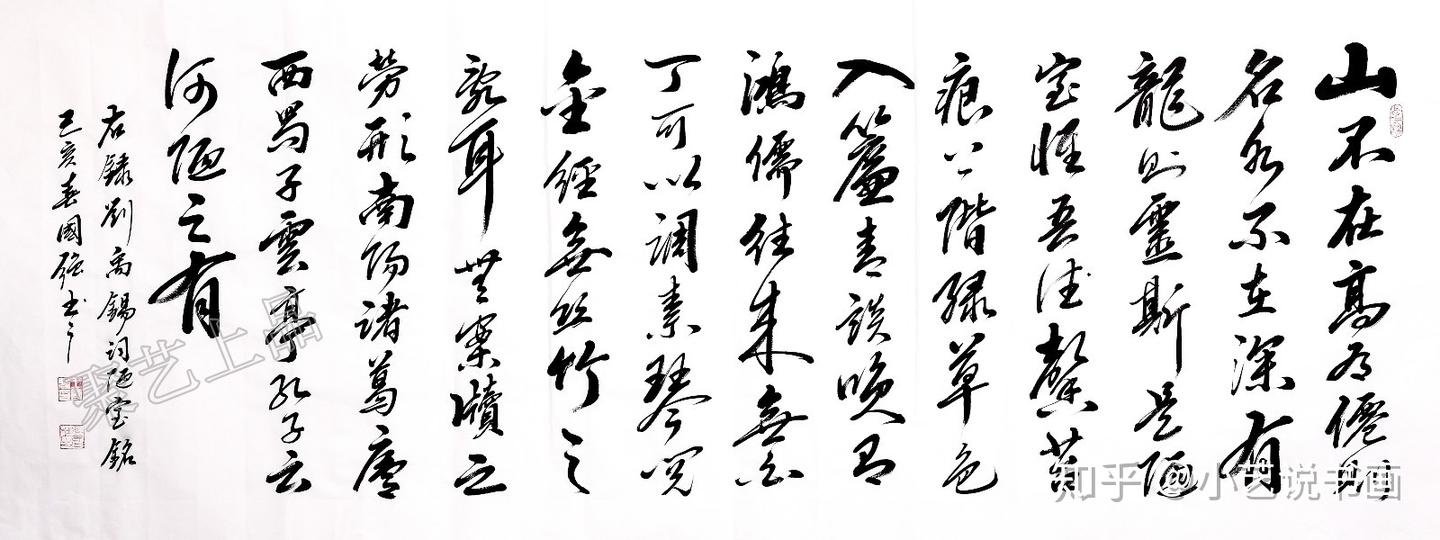 山不在高有僊則
名水不在深有
龍則靈斯是陋
室惟吾德馨苔
痕上階綠草色
入簾青談笑有
鴻儒往來無白
丁可以調素琴閱
金經無絲竹之
亂耳無案牘之
勞形南陽諸葛廬
西蜀子雲亭孔子云
何陋之有
右錄劉禹錫詞陋室銘
己亥春國強書之
聚艺上品
知乎 @小艺说书画